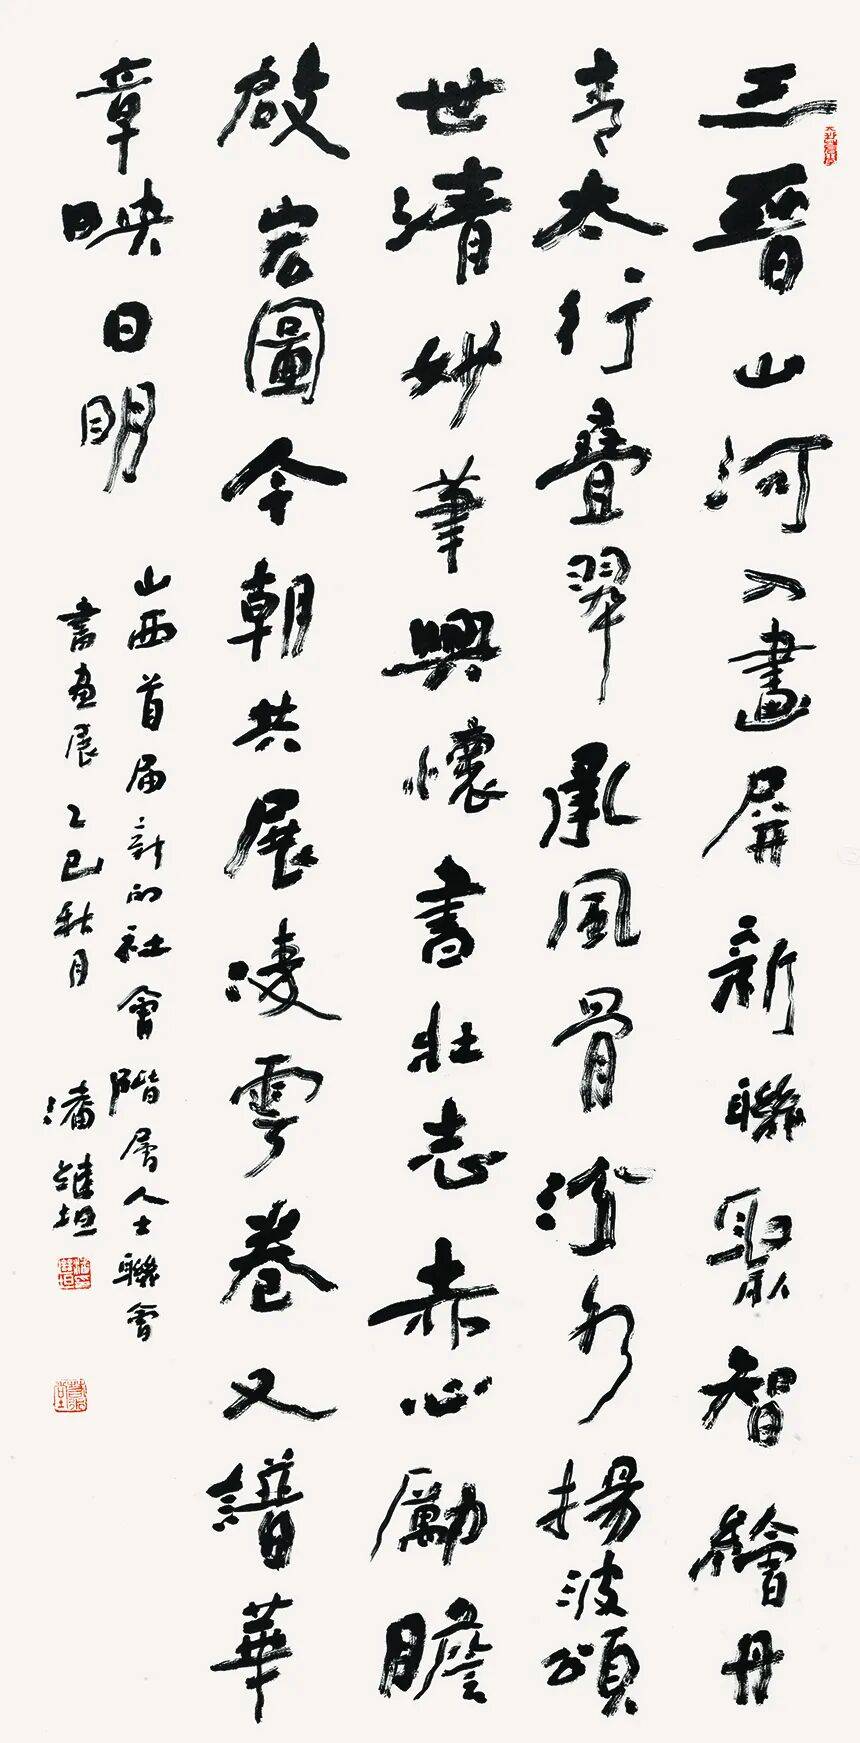 三晉山河入畫屏新聯聚智繪丹
青太行疊翠承風骨汾水揚波頌
世清妙筆興懷書壯志赤心勵膽
啟宏圖今朝共展凌雲卷又譜華
章映日明
山西首届新的社會階層人士聯會
書画展乙巳秋月 潘